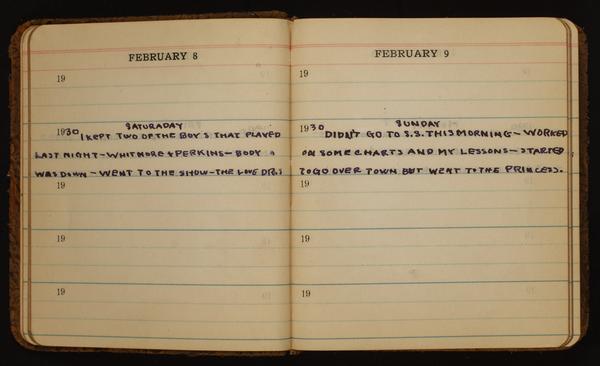 FEBRUARY 8
19
SATURADAY
1930 I KEPT TWO OF THE BOYS THAT PLAYED
LAST NIGHT - WHITMORE & PERKINS - BODY
WAS DOWN - WENT TO THE SHOW - THE LOVE
19
19
19
FEBRUARY 9
19
SUNDAY
1930 DIDN'T GO TO S.S. THIS MORNING - WORKED
ON SOME CHARTS AND MY LESSONS - STARTED
TO GO OVER TOWN BUT WENT TO THE PRINCESS.
19
19
19